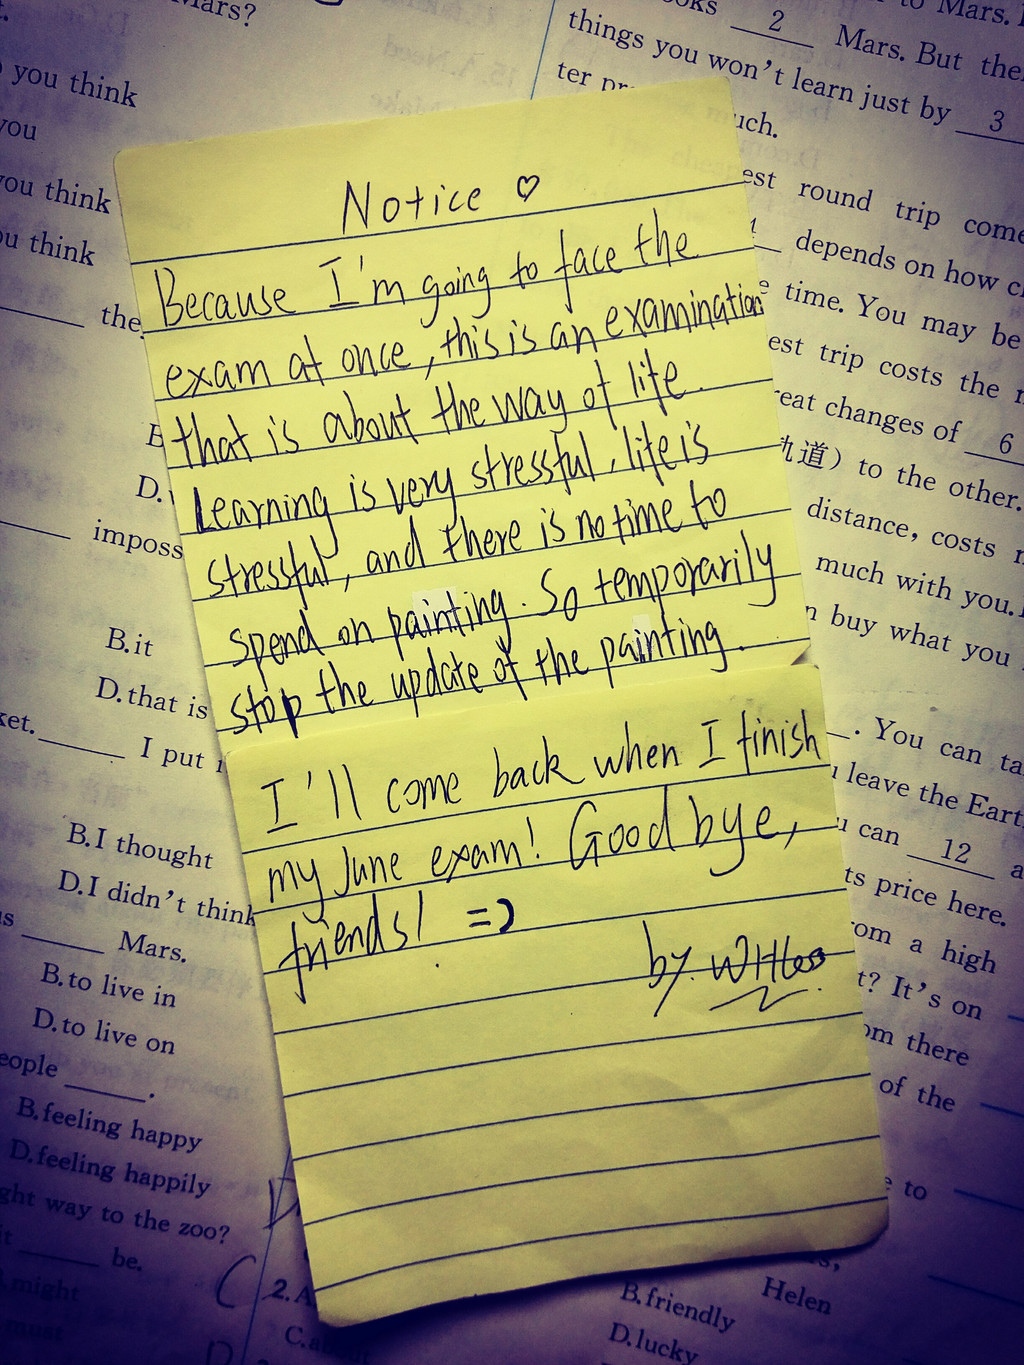 Notice ♡
Because I'm going to face the
exam at once, this is an examination
that is about the way of life.
Learning is very stressful, life is
stressful, and there is no time to
spend on painting. So temporarily
stop the update of the painting.
I'll come back when I finish
my June exam! Good bye,
friends! =)
by.
Mars?
you think
you
you think
you think
the
D.
imposs
B.it
D.that is
ket. I put
B.I thought
D.I didn't think
Mars.
B.to live in
D.to live on
eople .
B.feeling happy
D.feeling happily
ght way to the zoo?
it be.
might
must
C
2.A
D
to Mars.
ooks 2 Mars. But the
things you won't learn just by 3
ter
uch.
est round trip come
depends on how
time. You may be
est trip costs the
reat changes of 6
轨道）to the other.
distance, costs
much with you.
n buy what you
. You can ta
leave the Earth
u can 12 a
ts price here.
rom a high
t? It's on
om there
of the
e to
Helen
B.friendly
D.lucky